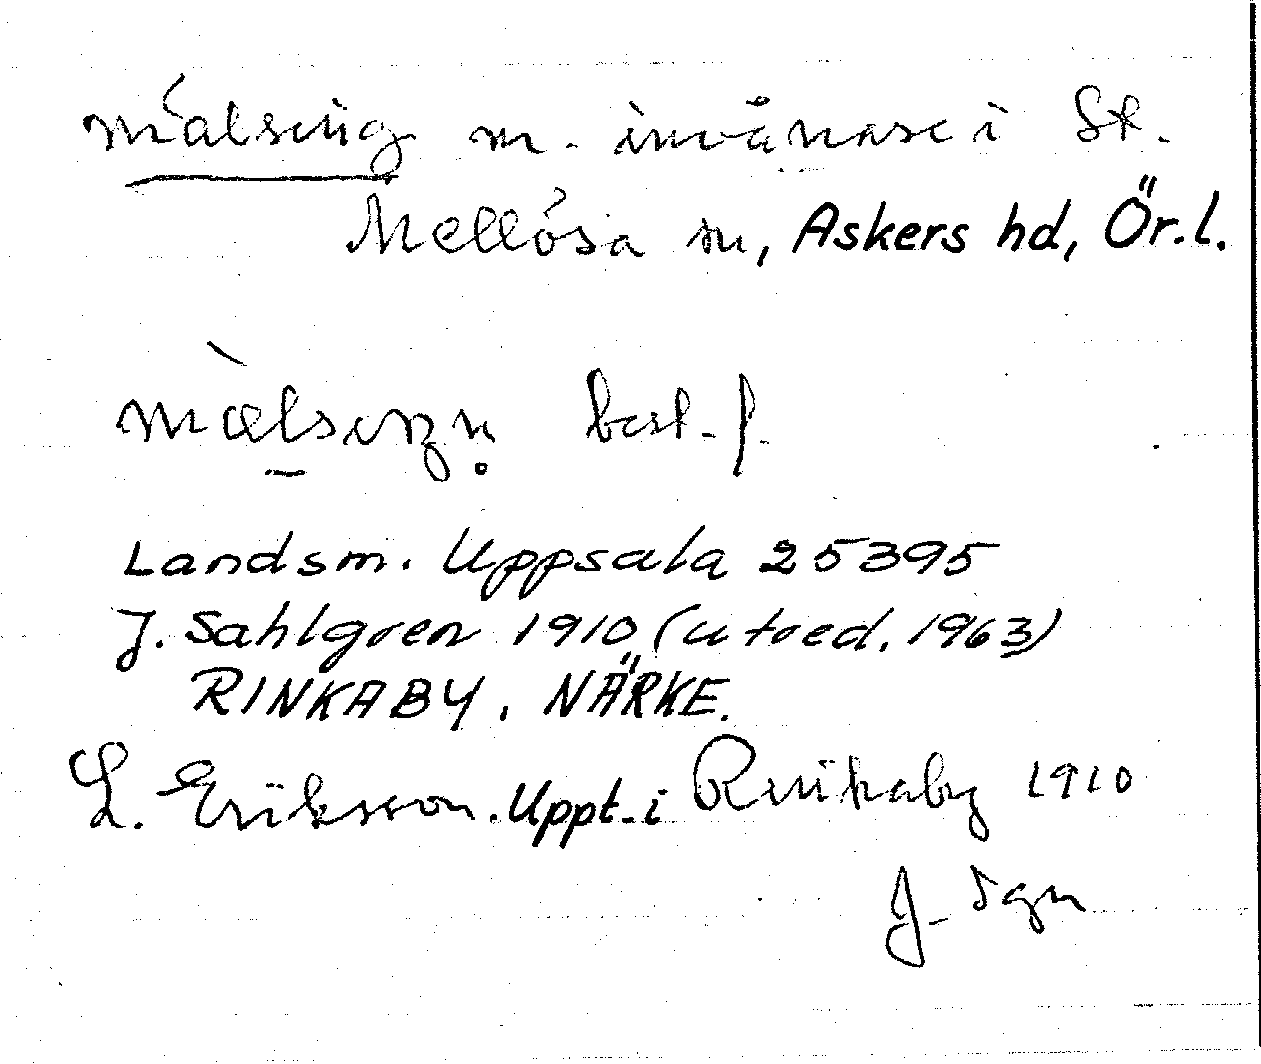 málsing m. invånare i St.
Mellösa sn, Askers hd, Ör.l.
best. f.
Landsm. Uppsala 25395
J. Sahlgren 1910 (utred. 1963)
RINKABY, NÄRKE.
L. Eriksson. Uppt. i Rinkaby 1910
J. Sgn